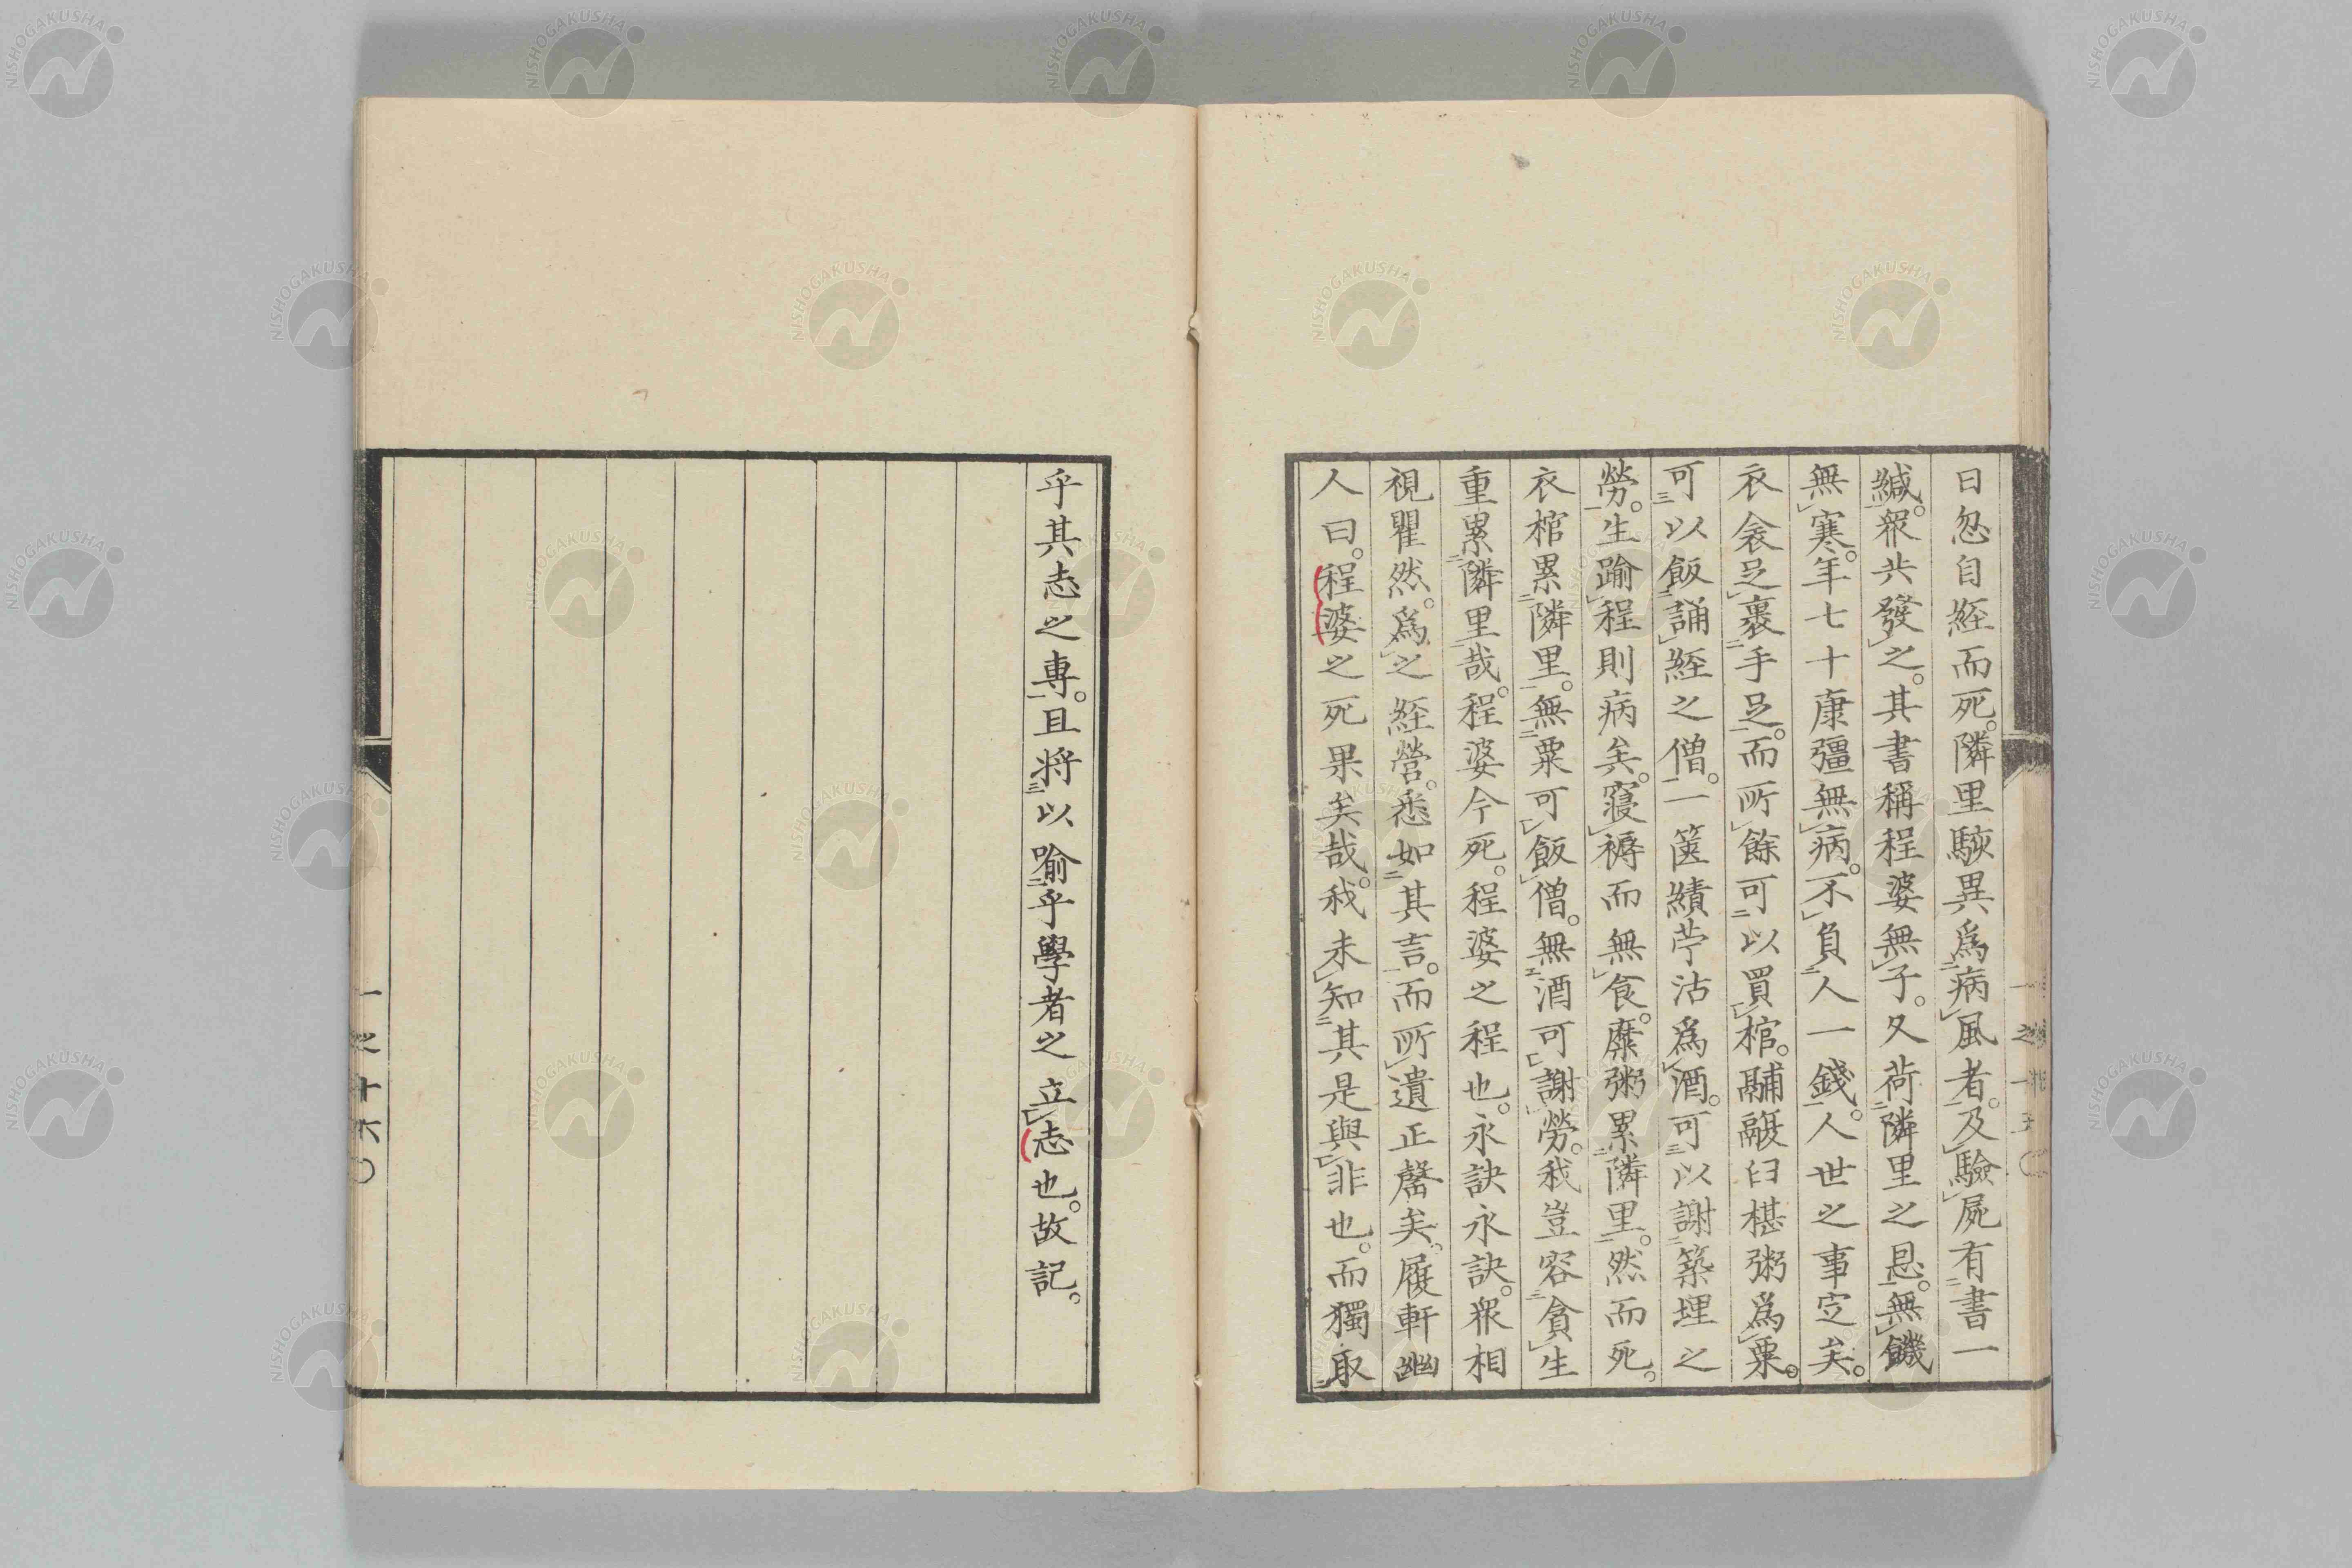 日忽自經而死。隣里駭異爲病風者。及驗屍有書一
緘。衆共發之。其書稱程婆無子。久荷隣里之恩。無饑
無寒。年七十康彊無病。不負人一錢。人世之事定矣。
衣衾足裹手足。而所餘可以買棺。鬴鬷臼椹粥爲粟。
可以飯誦經之僧。一篋績苧沽爲酒。可以謝築埋之
勞。生踰程則病矣。寢褥而無食。糜粥累隣里。然而死。
衣棺累隣里。無粟可飯僧。無酒可謝勞。我豈容貪生
重累隣里哉。程婆今死。程婆之程也。永訣永訣。衆相
視瞿然。爲之經營。悉如其言。而所遺正罄矣。履軒幽
人曰。程婆之死果矣哉。我未知其是與非也。而獨取
乎其志之專。且將以喻乎學者之立志也。故記。
一之十六
NISHOGAKUSHA